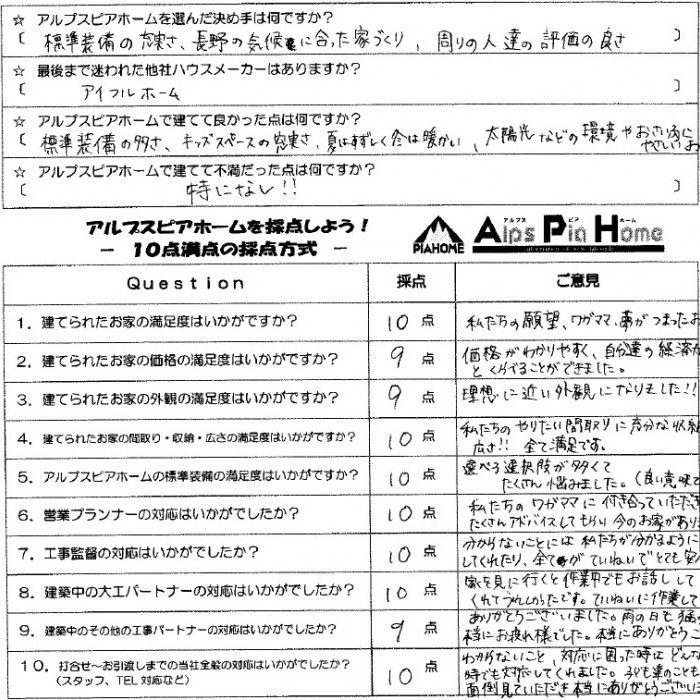 ☆ アルプスピアホームを選んだ決め手は何ですか?
( 標準装備の充実さ、長野の気候に合った家づくり, 周りの人達の評価の良さ )
☆ 最後まで迷われた他社ハウスメーカーはありますか?
( アイフルホーム )
☆ アルプスピアホームで建てて良かった点は何ですか?
( 標準装備の多さ、キッズスペースの充実さ、夏はすずしく冬は暖かい, 太陽光などの環境やおさいふに
やさしいお
☆ アルプスピアホームで建てて不満だった点は何ですか?
( 特になし!! )
アルプスピアホームを採点しよう!
- 10点満点の採点方式 -
PIAHOME
アルプス ピア ホーム
Alps Pia Home
Question 採点 ご意見
1. 建てられたお家の満足度はいかがですか? 10 点 私たちの願望、ワガママ、夢がつまったお
2. 建てられたお家の価格の満足度はいかがですか? 9 点 価格がわかりやすく、自分達の経済力
と くらべることができました。
3. 建てられたお家の外観の満足度はいかがですか? 9 点 理想に近い外観になりました!!
4. 建てられたお家の間取り・収納・広さの満足度はいかがですか? 10 点 私たちのやりたい間取りに充分な収納
広さ!! 全て満足です。
5. アルプスピアホームの標準装備の満足度はいかがですか? 10 点 選べる選択肢が多くて
たくさん悩みました。(良い意味で
6. 営業プランナーの対応はいかがでしたか? 10 点 私たちのワガママに付き合っていただき
たくさんアドバイスしてもらい今のお家があり
7. 工事監督の対応はいかがでしたか? 10 点 分からないことには私たちが分かるように
してくれたり、全てが ていねいでとても安
8. 建築中の大工パートナーの対応はいかがでしたか? 10 点 家を見に行くと作業中でもお話しして
くれてうれしかったです。ていねいに作業して
9. 建築中のその他の工事パートナーの対応はいかがでしたか? 9 点 ありがとうございました。雨の日も猛
本当にお疲れ様でした。本当にありがとうご
10. 打合せ~お引渡しまでの当社全般の対応はいかがでしたか?
(スタッフ、TEL対応など) 10 点 わからないこと、対応に困った時は どんな
時でも対応してくれました。子ども達のことも
面倒見ていただき本当にありがとうござい